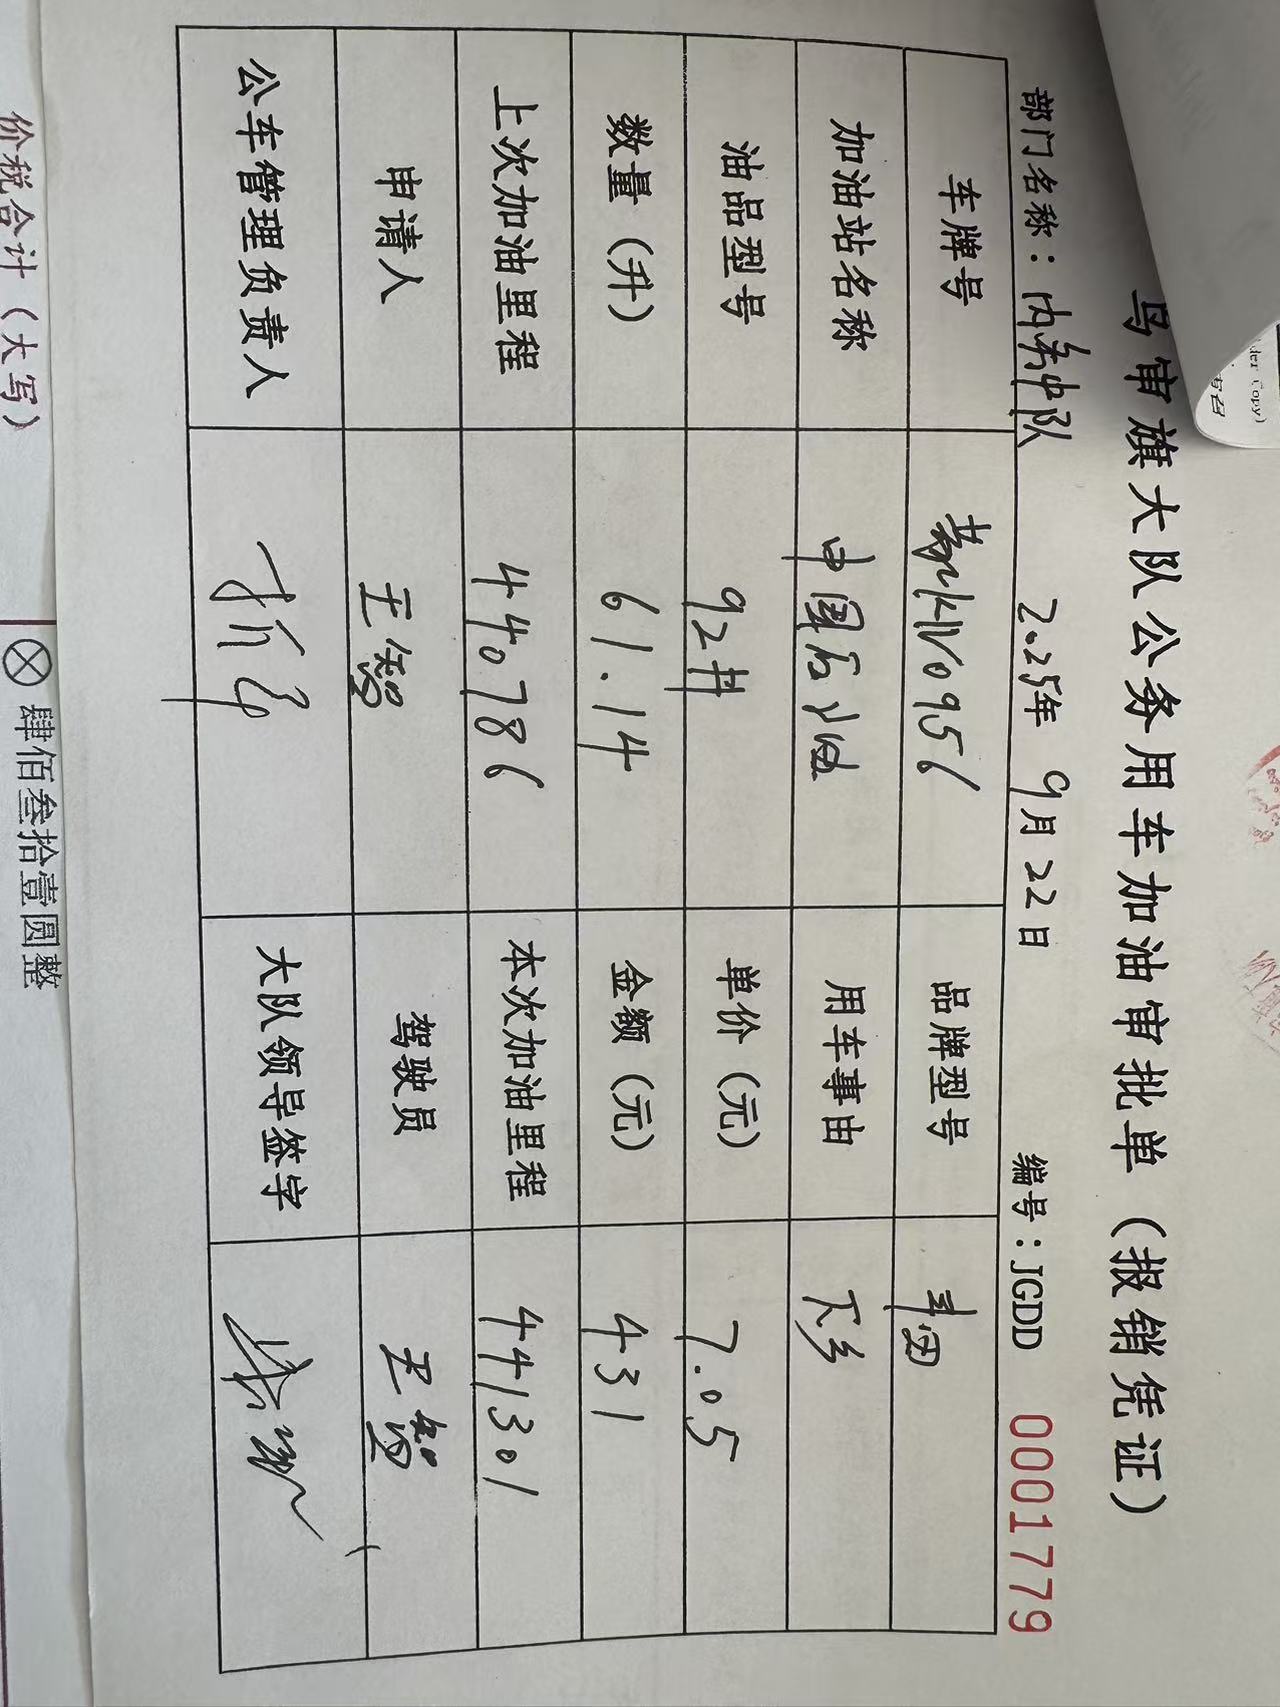 乌审旗大队公务用车加油审批单（报销凭证）
部门名称：内务中队 2025年 9月22日 编号：JGDD 0001779
车牌号 蒙KV0956 品牌型号 丰田
加油站名称 中国石油 用车事由 下乡
油品型号 92# 单价（元） 7.05
数量（升） 61.14 金额（元） 431
上次加油里程 440786 本次加油里程 441301
申请人 王智 驾驶员 王智
公车管理负责人 大队领导签字
价税合计（大写） 肆佰叁拾壹圆整